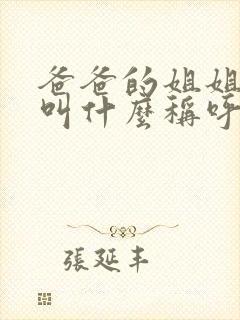 爸爸的姐姐
叫什麼稱呼
張延丰